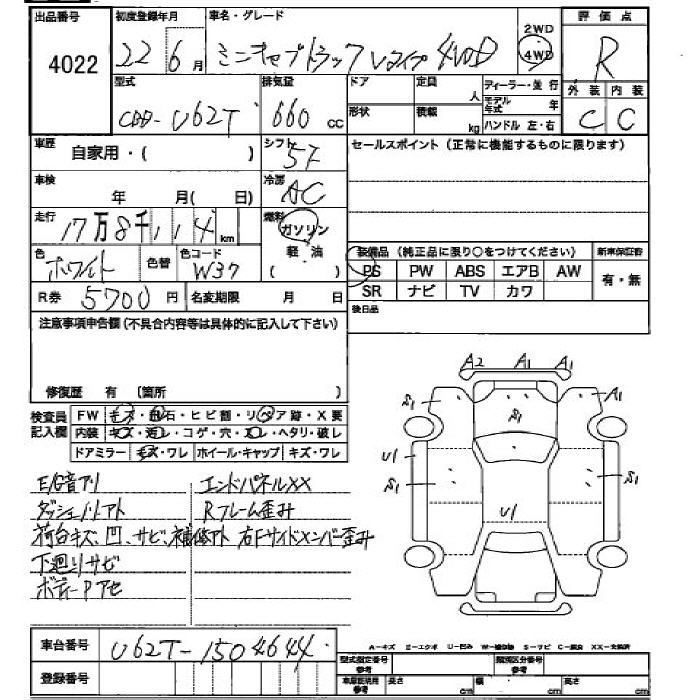 出品番号 初度登録年月 車名・グレード 2WD 4WD 評価点
4022 22 6月 ミニキャブトラック Vタイプ 4WD R
型式 排気量 ドア 定員 人 ディーラー・並行 外装 内装
CBD-U62T 660cc 形状 積載 kg モデル年式 年 ハンドル 左・右 C C
車歴 自家用・( ) シフト 5F セールスポイント(正常に機能するものに限ります)
車検 年 月( 日) 冷房 AC
走行 17万8千114km 燃料 ガソリン 軽・油 ( )
色 ホワイト 色替 色コード W37
装備品(純正品に限り○をつけてください) 新車保証書
PS PW ABS エアB AW 有・無
SR ナビ TV カワ
R券 5700円 名変期限 月 日 後日品
注意事項申告欄(不具合内容等は具体的に記入して下さい)
修復歴 有 〔箇所 〕
検査員記入欄 FW キズ・飛石・ヒビ割・リペア跡・X要
内装 キズ・汚レ・コゲ・穴・スレ・ヘタリ・破レ
ドアミラー キズ・ワレ ホイール・キャップ キズ・ワレ
A2 A1 A1
S1 S1 A1
U1 S1 S1
U1
E/G音アリ エンドパネルXX
ダッシュノリアト Rフレーム歪み
荷台キズ、凹、サビ、補修アト 右Fサイドメンバー歪み
下廻りサビ
ボデーPアセ
A-キズ U-凹み S-サビ
車台番号 U62T-1504644
登録番号 型式指定番号 参考 類別区分番号 参考
車庫証明用 参考 長さ cm 幅 cm 高さ cm